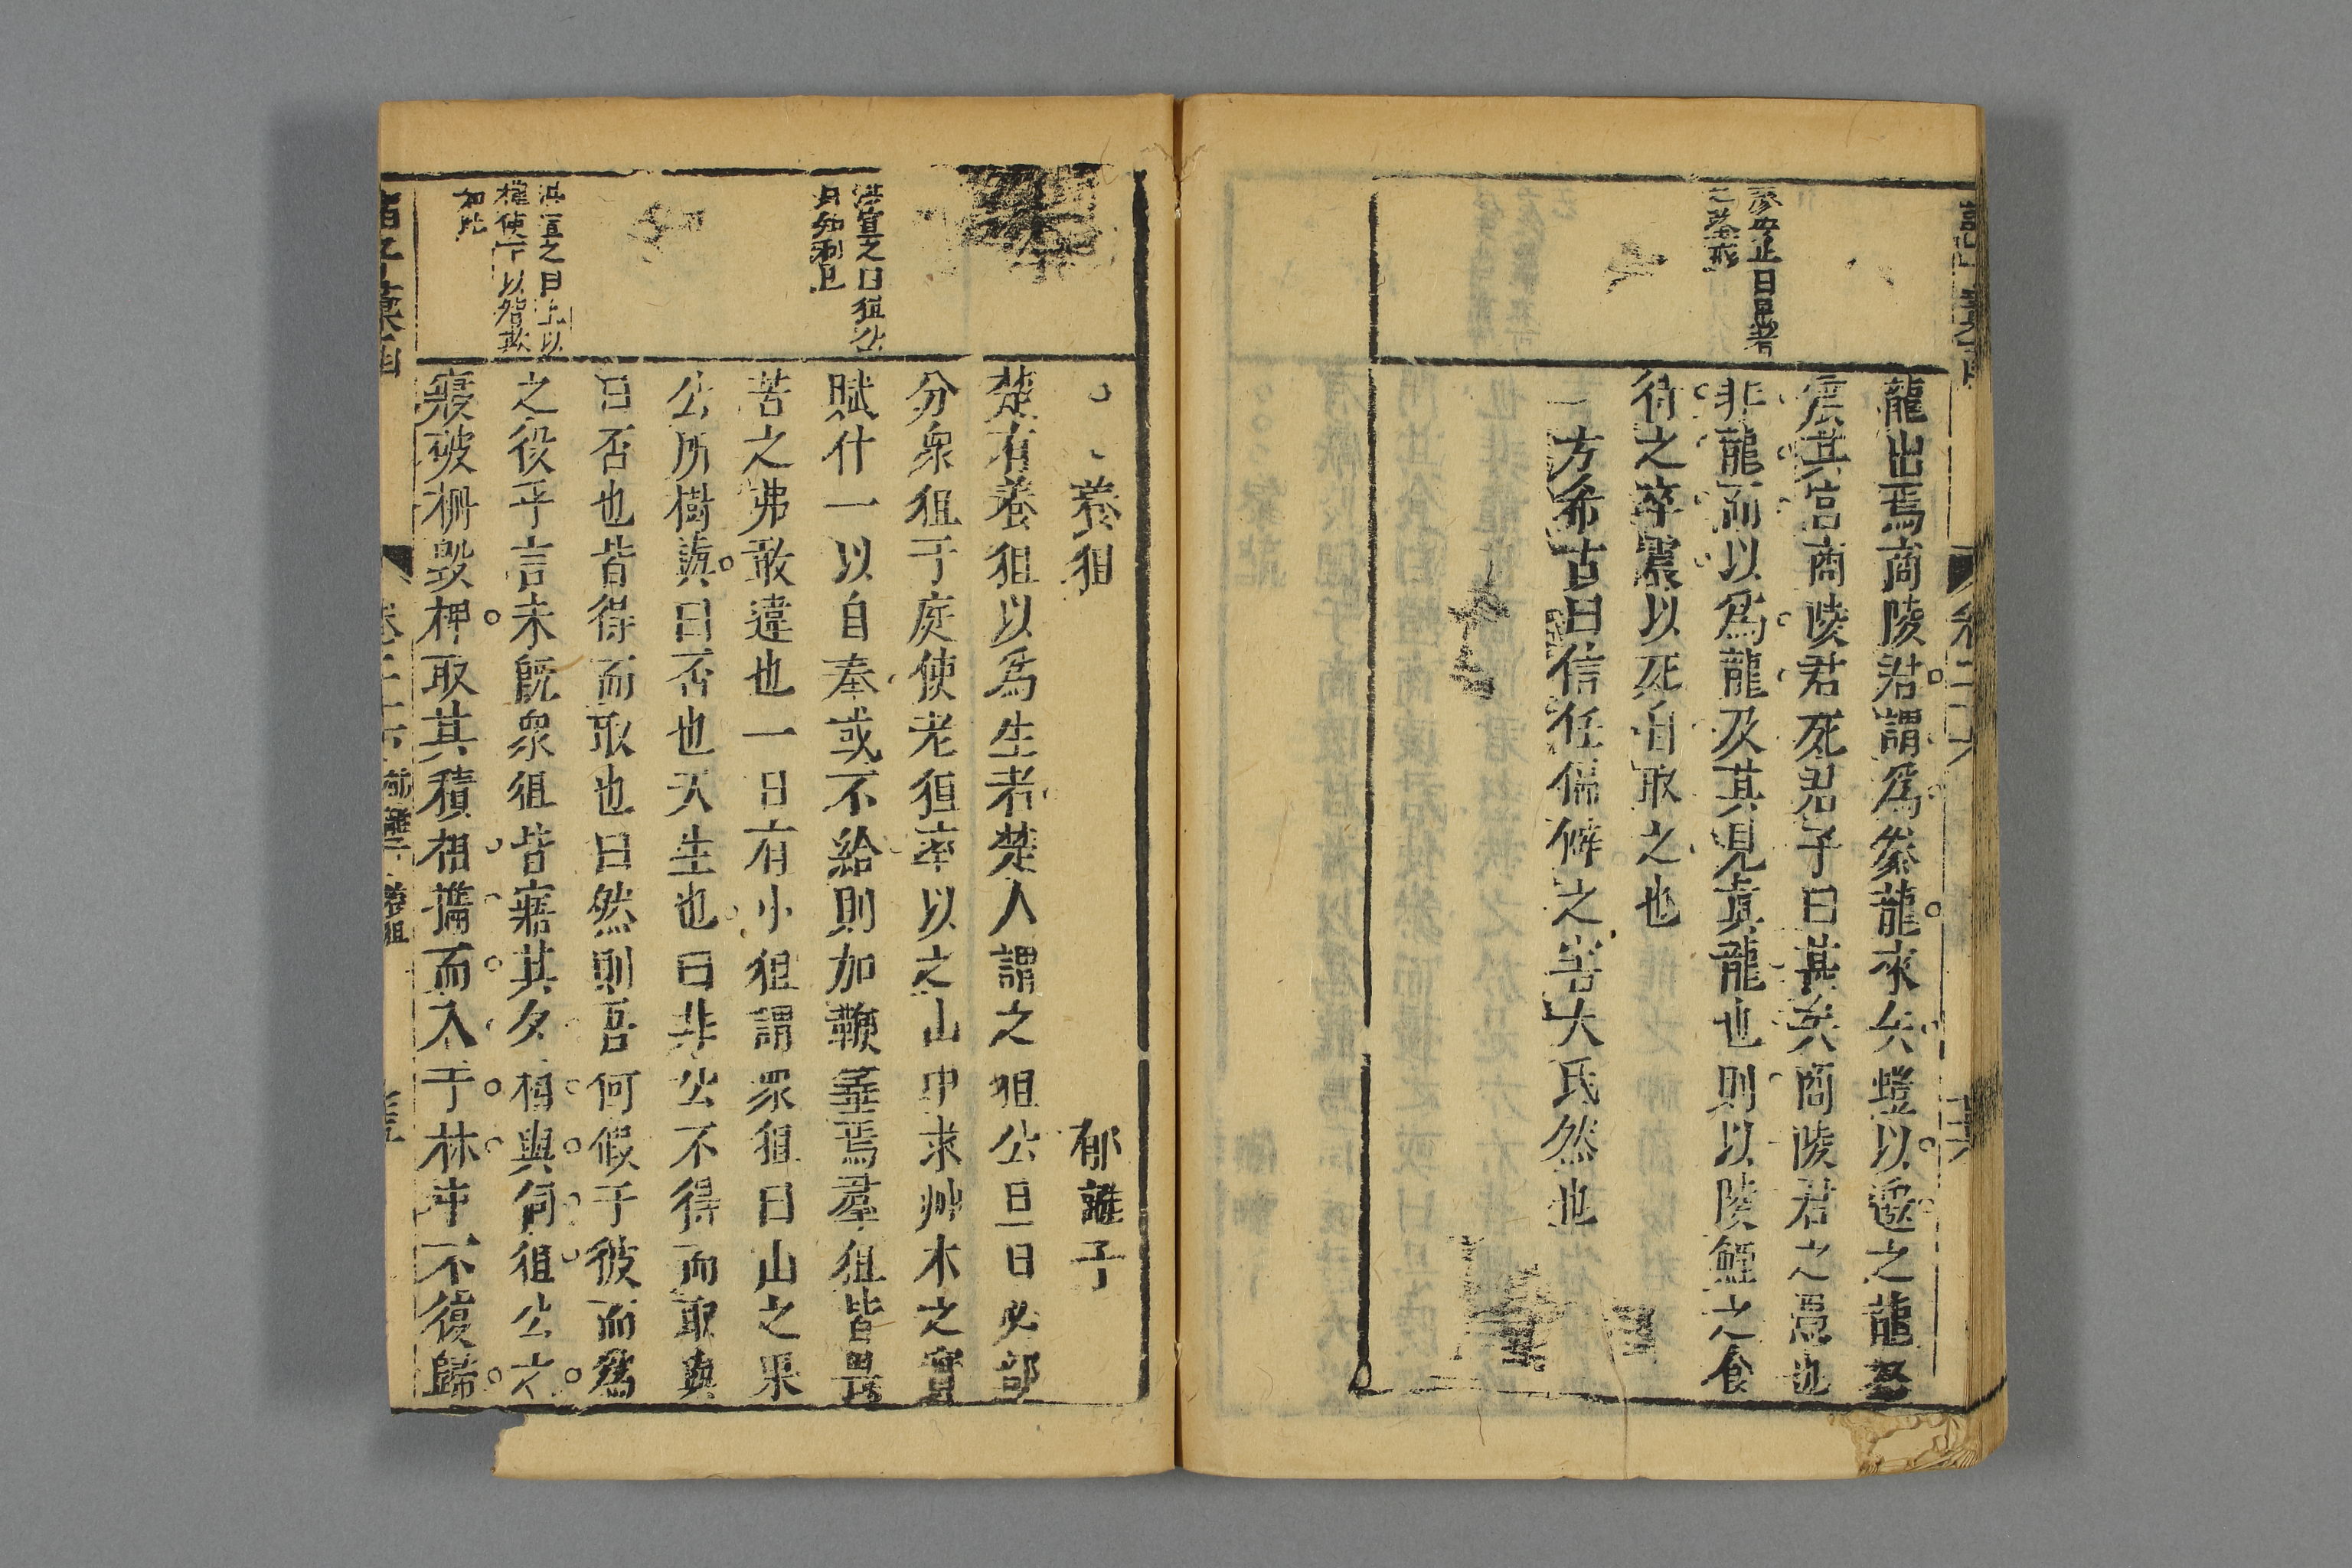 龍出焉商陵君謂爲豢龍來矢蹚以邀之龍怒
震其宮商陵君死君子曰甚矣商陵君之愚也
非龍而以爲龍及其見眞龍也則以陵鯉之食
待之卒震以死自取之也
方希古曰信任偏僻之害大氐然也
養狙 郁離子
楚有養狙以爲生者楚人謂之狙公旦日必部
分衆狙于庭使老狙率以之山中求艸木之實
賦什一以自奉或不給則加鞭箠焉羣狙皆畏
苦之弗敢違也一日有小狙謂眾狙曰山之果
公所樹與曰否也天生也曰非公不得而取與
曰否也皆得而取也曰然則吾何假于彼而爲
之役乎言未既衆狙皆寤其夕相與伺狙公之
寢破柵毀柙取其積相攜而入于林中不復歸
洪宣之曰狙公
洪宣之曰上以
權使下以